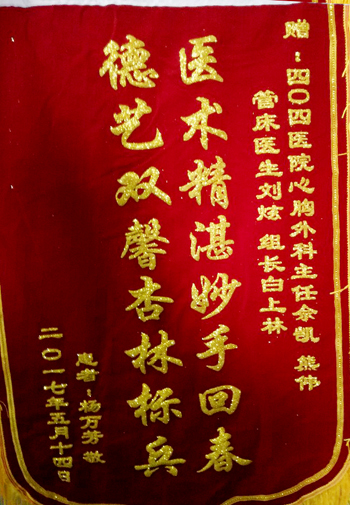 赠：四〇四医院心胸外科主任余凯 熊伟
管床医生刘炫 组长白上林
医术精湛妙手回春
德艺双馨杏林标兵
患者：杨万芳敬
二〇一七年五月十四日